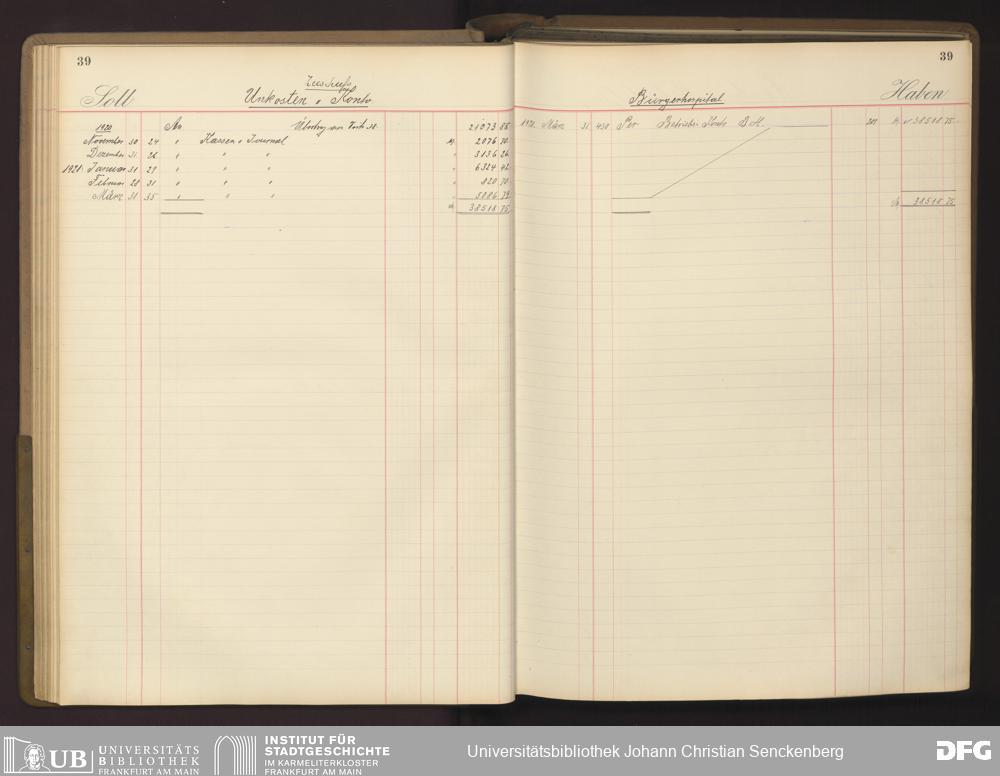 39
Soll
Unkosten - Konto
1920 An Übertrag von 38. 21073 88
November 30 24 " Kassen - Journal M. 2076 70
Dezember 31 26 " " " " 3136 26
1921 Januar 31 29 " " " " 6324 42
Februar 28 31 " " " " 820 70
März 31 35 " " " " 5086 79
M. 38518 75
39
Bürgerhospital
Haben
1921 März 31 430 Per Betriebs Konto B.H. 201 M. 38518 75
M. 38518 75
UB UNIVERSITÄTS
BIBLIOTHEK
FRANKFURT AM MAIN
INSTITUT FÜR
STADTGESCHICHTE
IM KARMELITERKLOSTER
FRANKFURT AM MAIN
Universitätsbibliothek Johann Christian Senckenberg
DFG